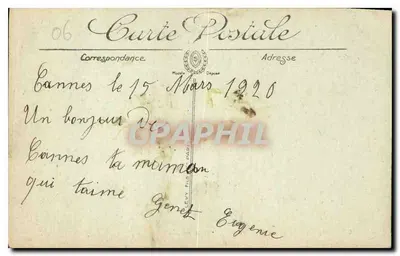 06
Carte Postale
Correspondance
Adresse
Cannes le 15 Mars 1920
Un bonjour De
CPAPHIL
Cannes ta maman
qui taime
Genet Eugenie